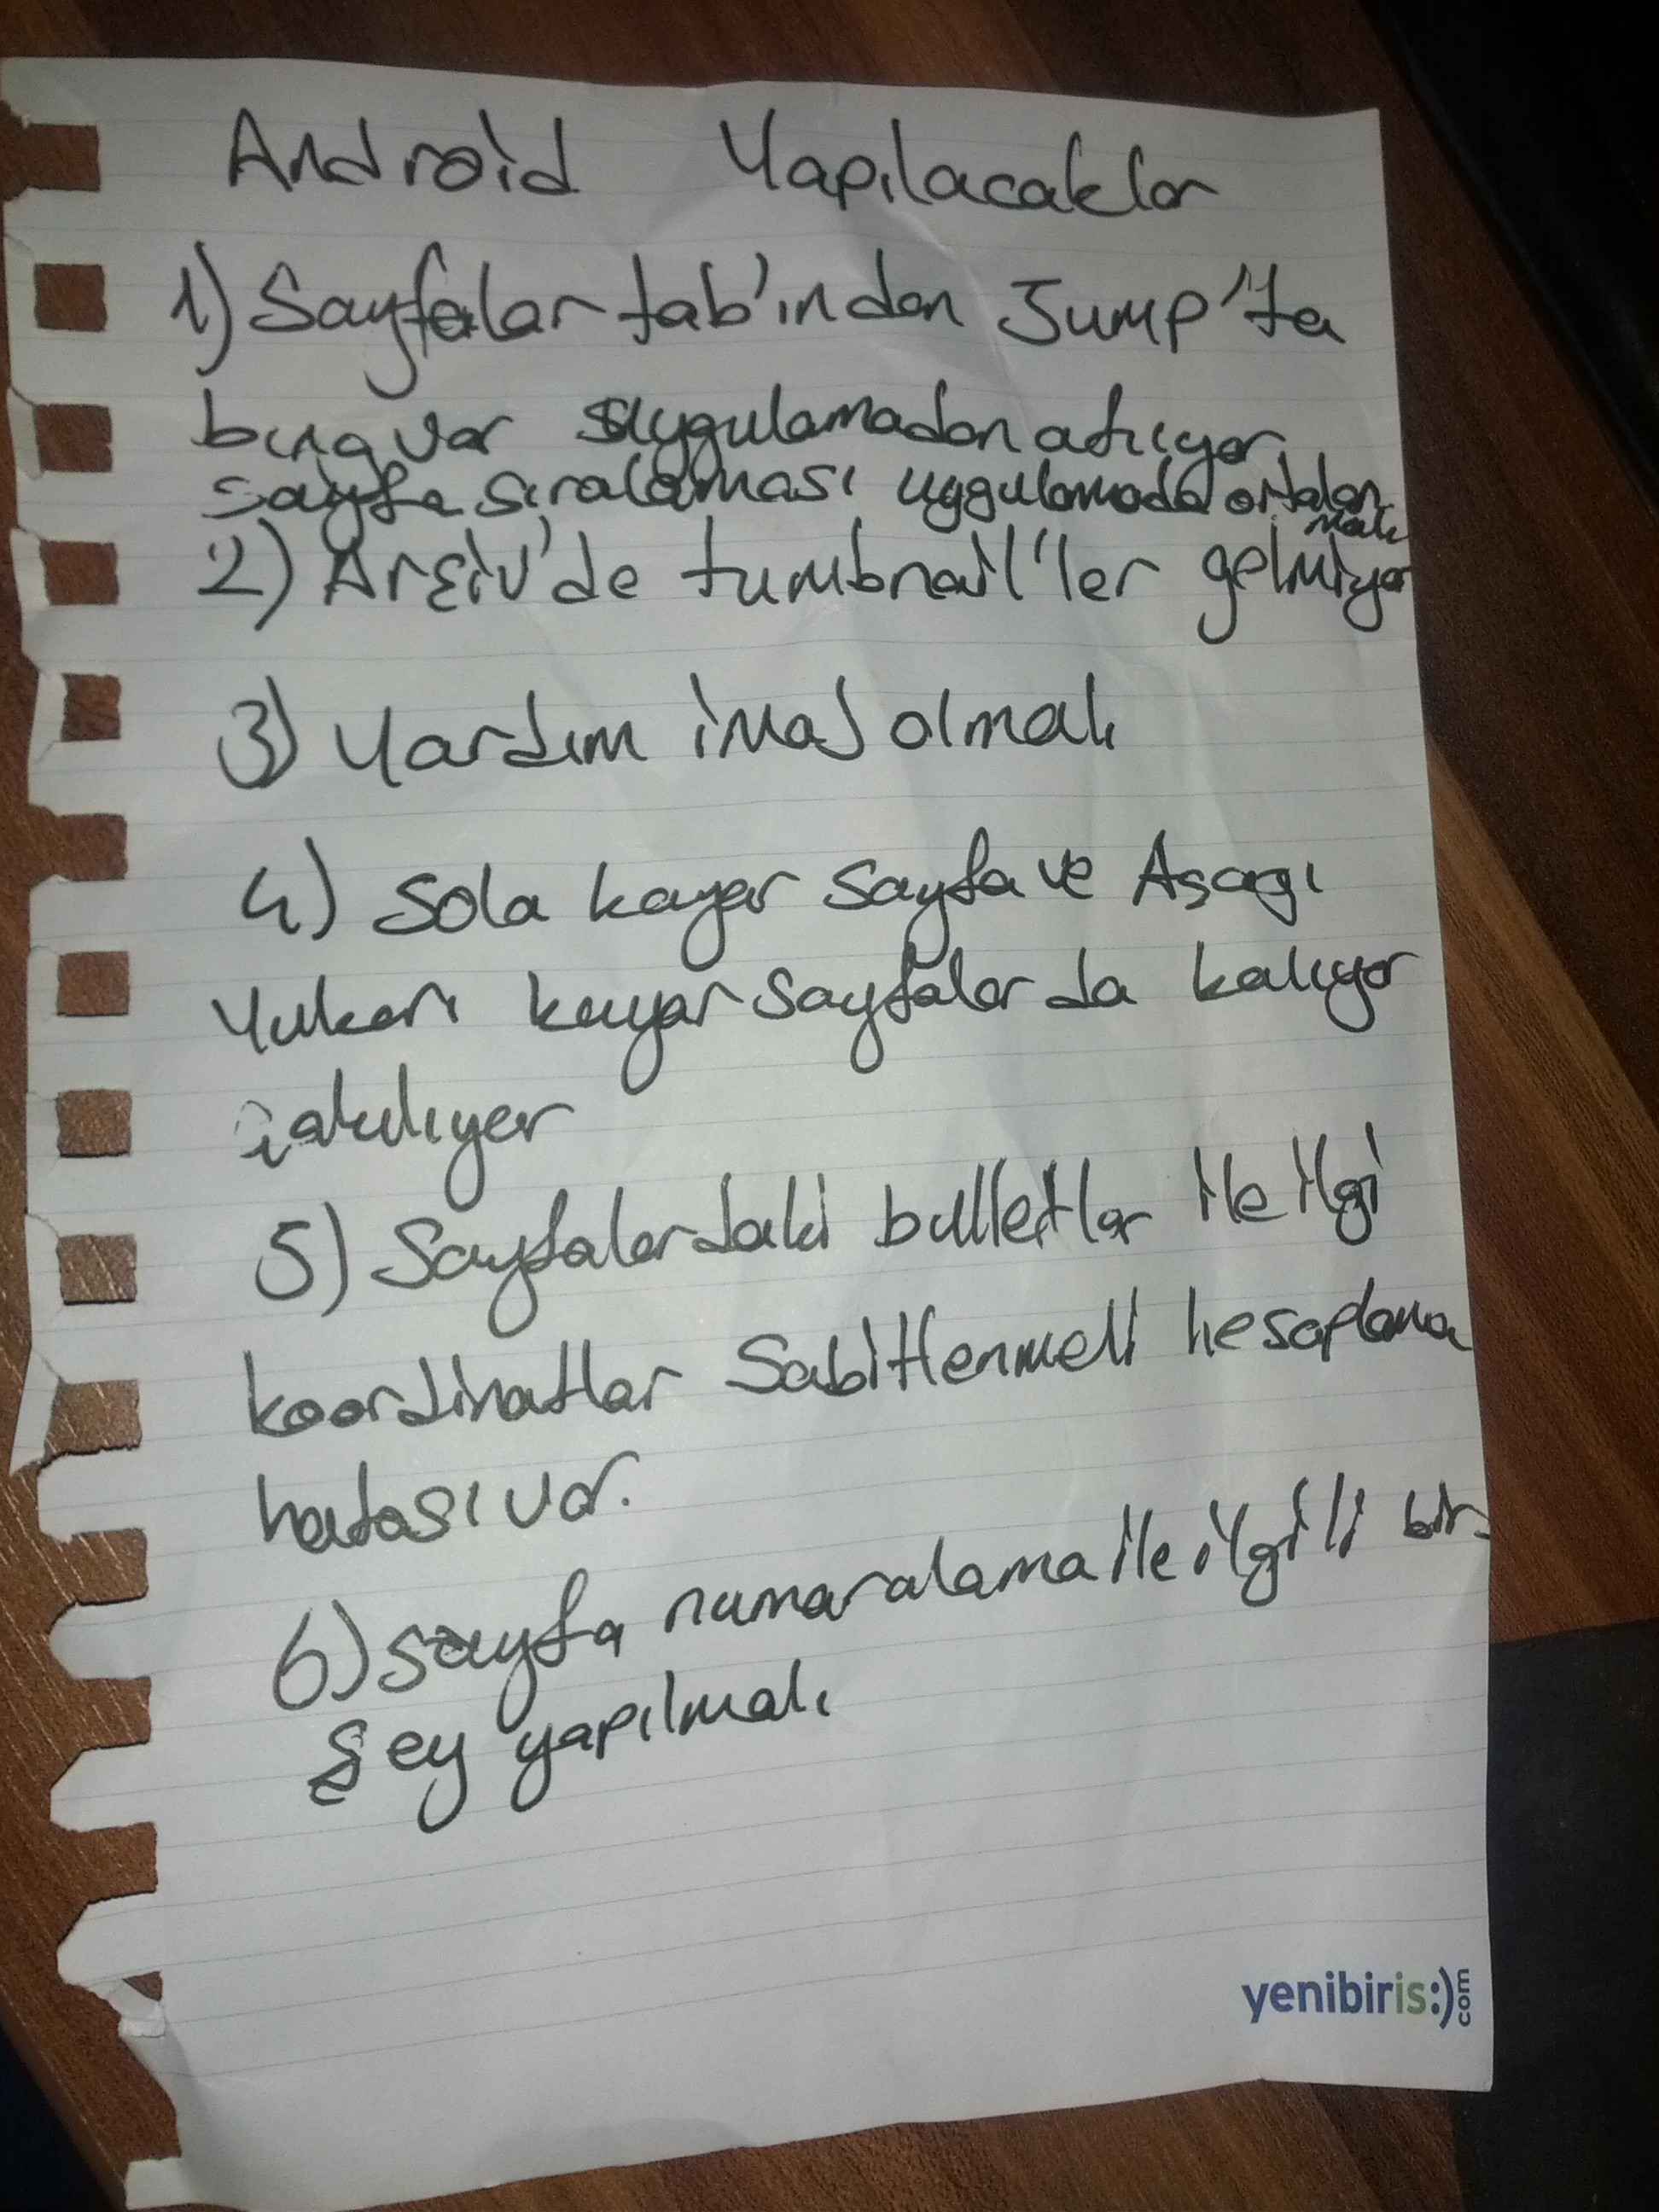 Android Yapılacaklar
1) Sayfalar tab'ından Jump'ta
bug var uygulamadan atılıyor
sayfa sıralaması uygulamada ortalan
malı
2) Arşiv'de tumbnail'ler gelmiyor
3) Yardım imaj olmalı
4) Sola kayar sayfa ve Aşagı
Yukarı kayar sayfalar da kalıyor
takılıyor
5) Sayfalardaki bulletlar ile ilgi
koordinatlar Sabitlenmeli hesaplama
hatası var.
6) sayfa numaralama ile ilgili bir
şey yapılmalı
yenibiris:)com